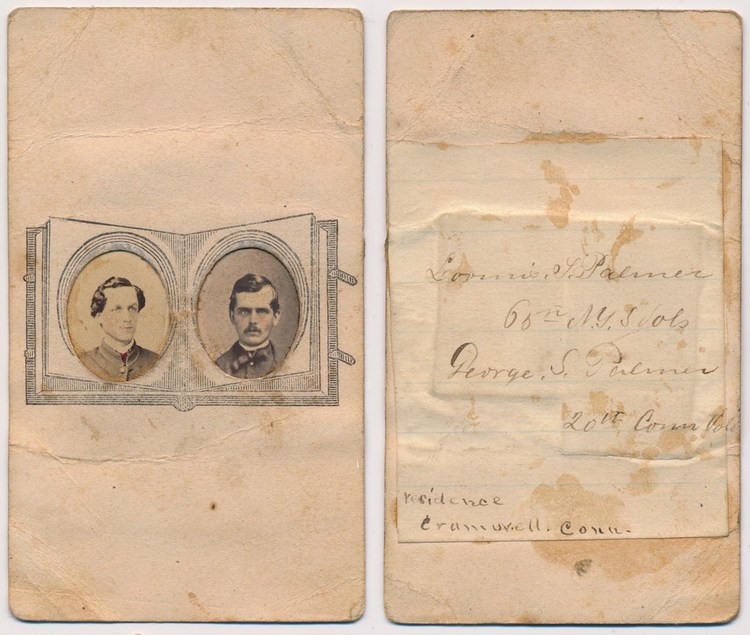 Loomis. S. Palmer
60th N.Y. S Vols
George. S. Palmer
20th Conn Vols
residence
Cromwell. Conn.